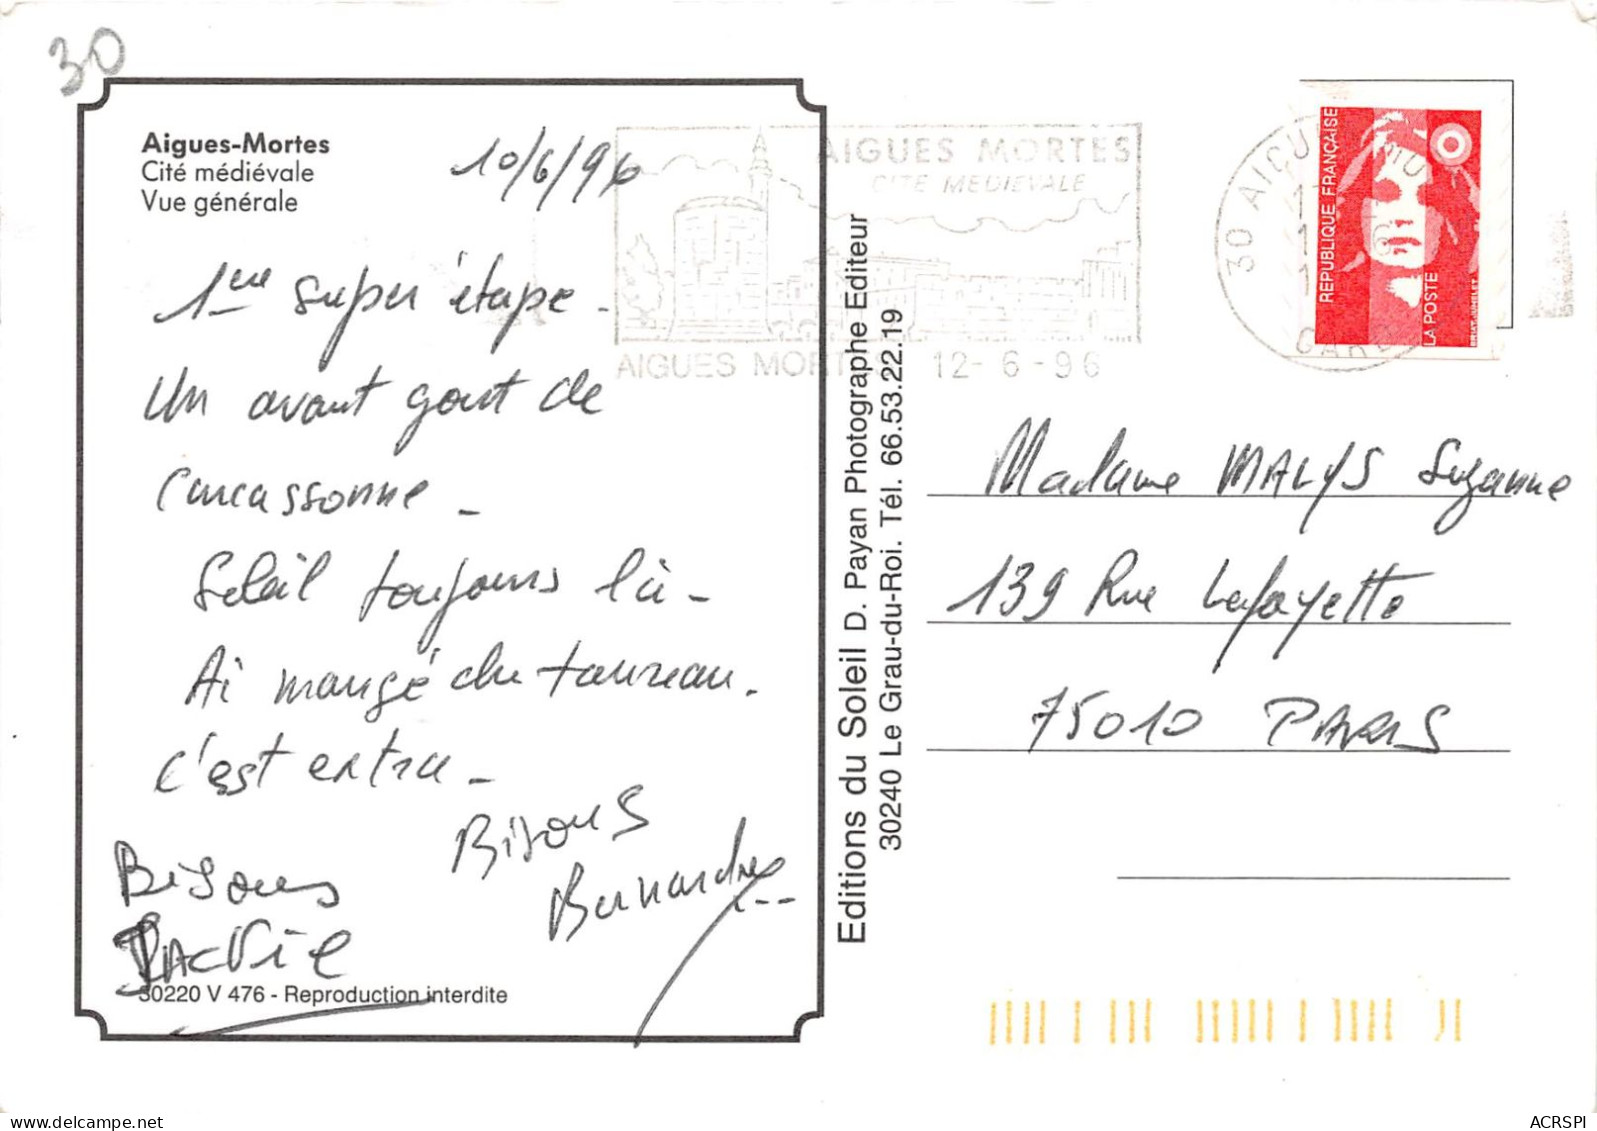 30
Aigues-Mortes
Cité médiévale
Vue générale
10/6/96
1ère super étape -
Un avant gout de
Carcassonne -
Soleil toujours là -
Ai mangé du taureau.
c'est extra -
Bisous
Bisous
30220 V 476 - Reproduction interdite
Editions du Soleil D. Payan Photographe Editeur
30240 Le Grau-du-Roi. Tél. 66.53.22.19
AIGUES MORTES
CITE MEDIEVALE
AIGUES MORTES 12-6-96
30 AIGU
GARD
REPUBLIQUE FRANÇAISE
LA POSTE
Madame MALYS Suzanne
139 Rue Lafayette
75010 PARIS
ACRSPI